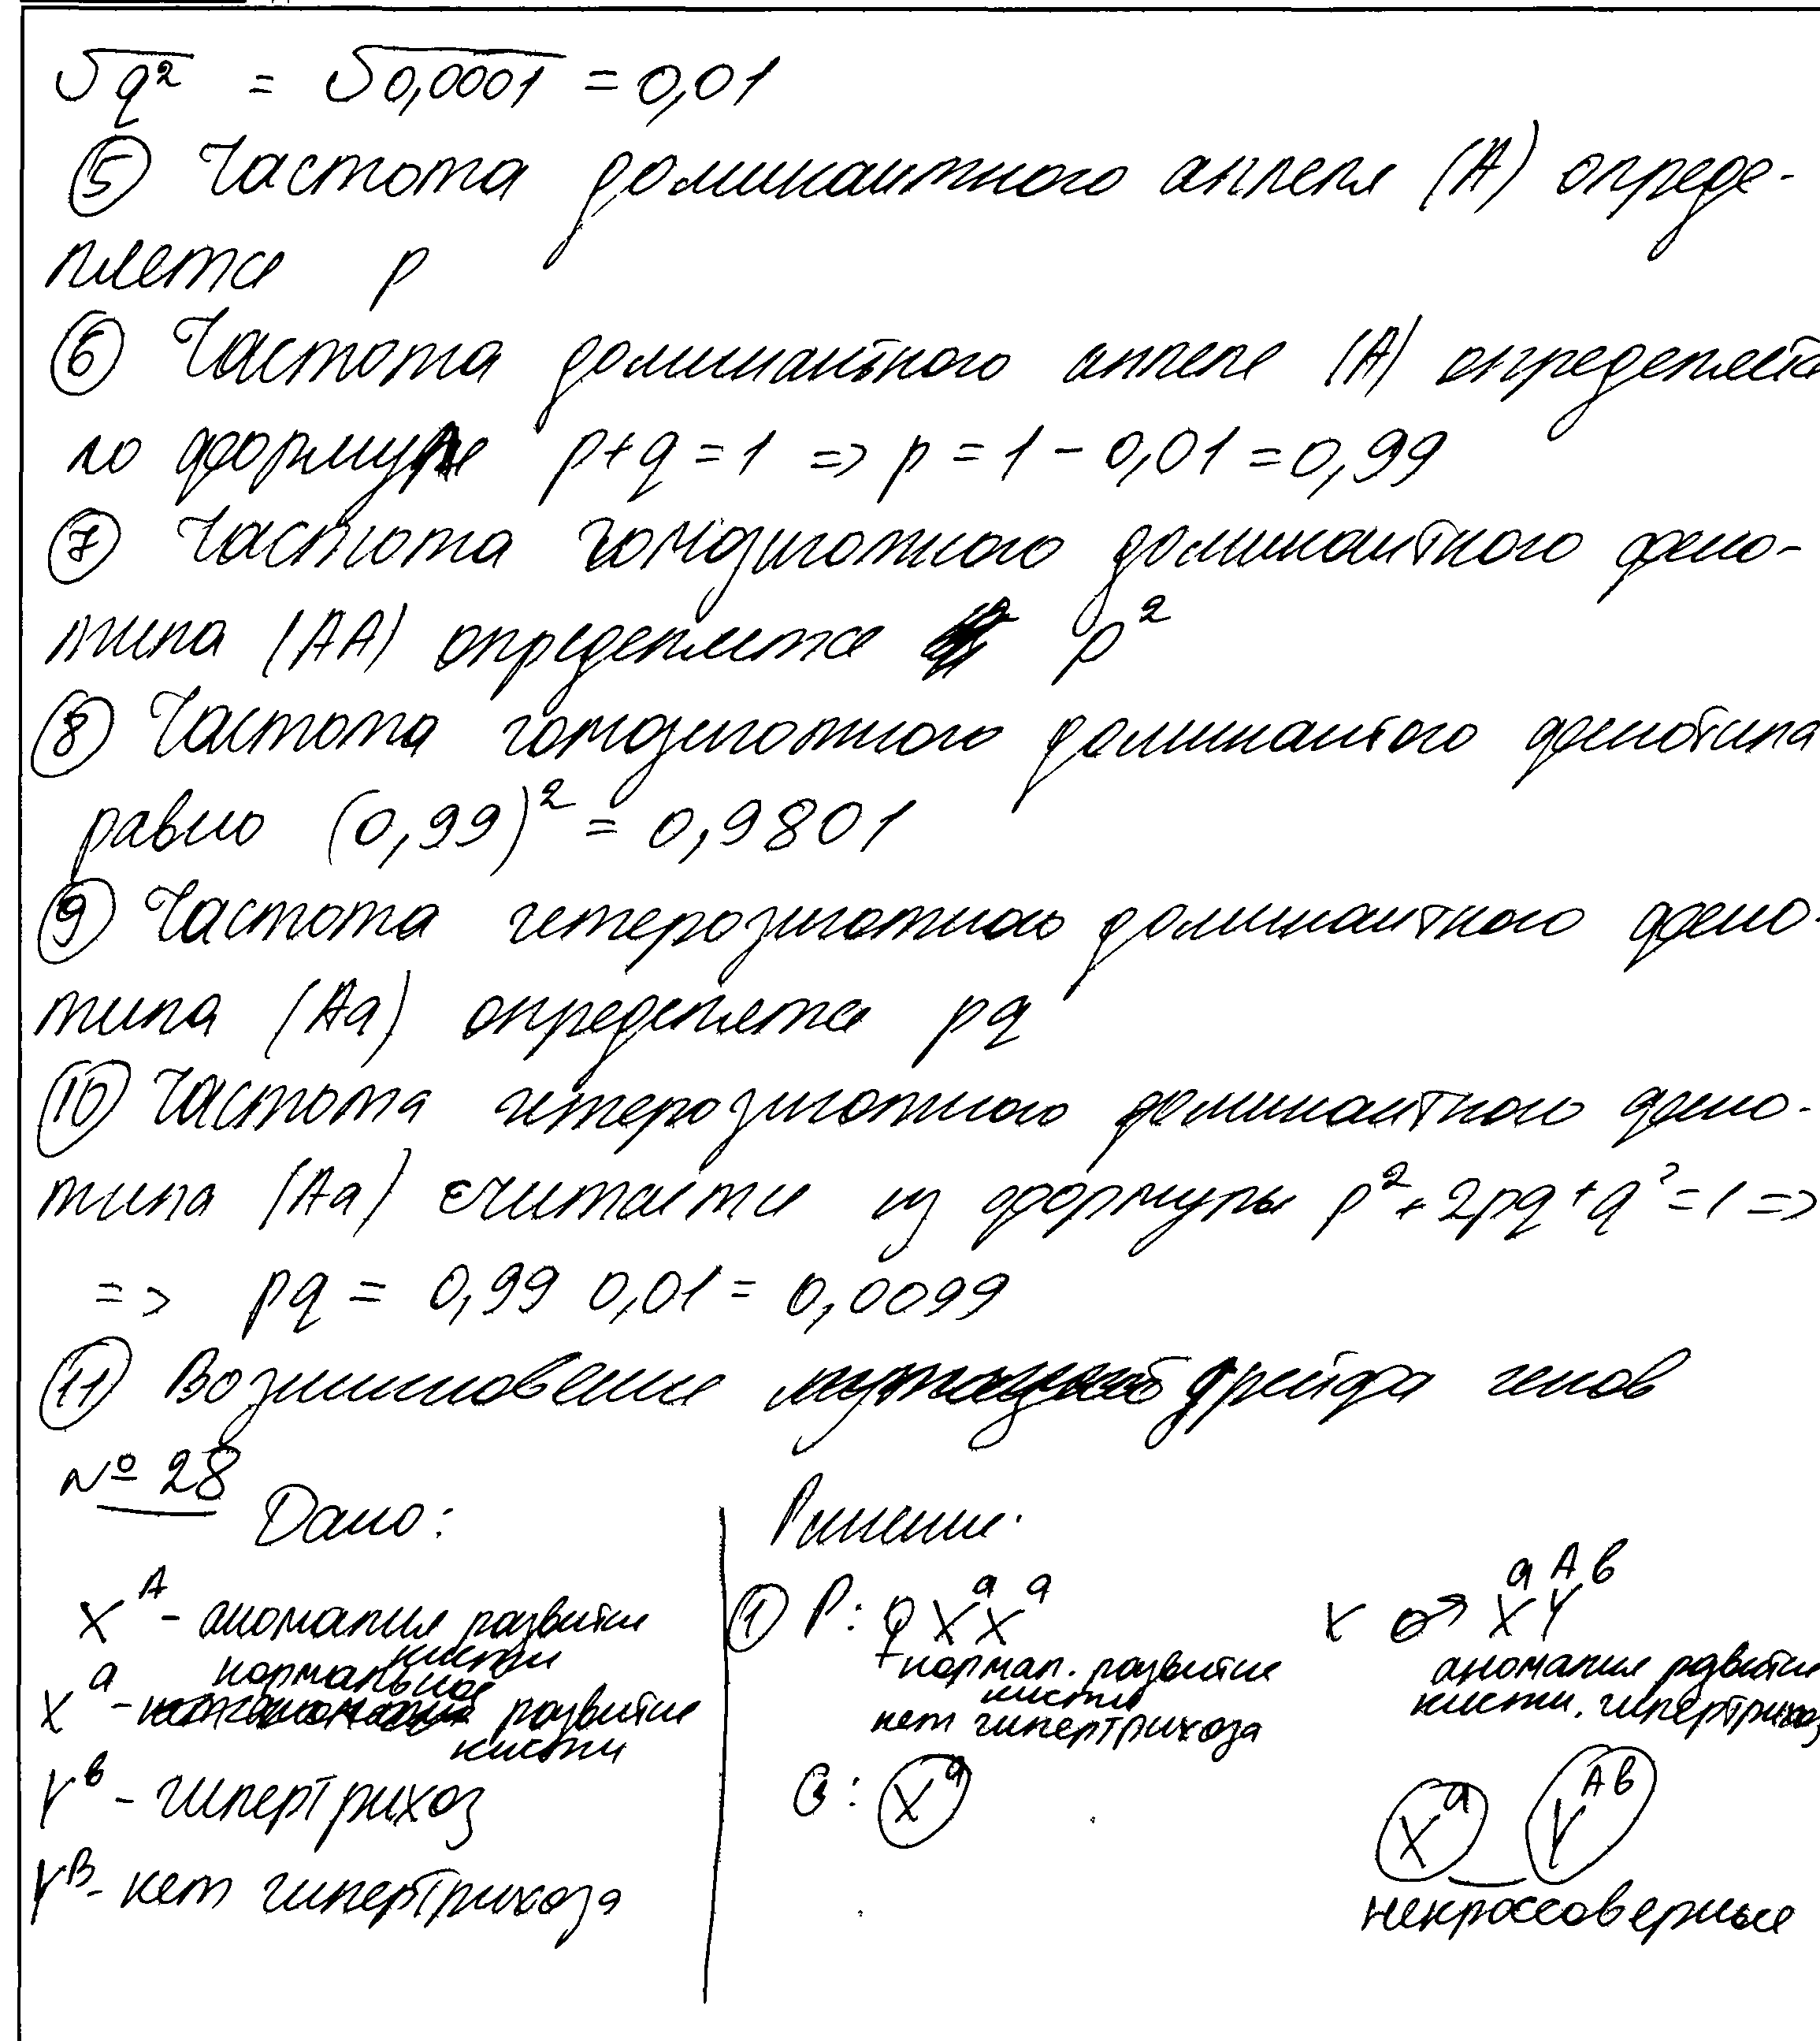 √q² = √0,0001 = 0,01
⑤ Частота доминантного аллеля (А) опреде-
ляется p
⑥ Частота доминантного аллеля (А) определяется
по формуле p+q = 1 => p = 1 - 0,01 = 0,99
⑦ Частота гомозиготного доминантного фено-
типа (АА) определяется p²
⑧ Частота гомозиготного доминантого фенотипа
равно (0,99)² = 0,9801
⑨ Частота гетерозиготного доминантного фено-
типа (Аа) определяется pq
⑩ Частота гетерозиготного доминантного фено-
типа (Аа) считается из формулы p² + 2pq + q² = 1 =>
=> pq = 0,99 0,01 = 0,0099
⑪ Возникновение дрейфа генов
№ 28
Дано: Решение.
X^A - аномалия развитие кисти
X^a - нормальное развитие кисти
Y^в - гипертрихоз
Y^В - нет гипертрихоза
① P: ♀ X^a X^a x ♂ X^a Y^Ав
нормал. развитие кисти нет гипертрихоза
аномалия развитие кисти, гипертрихоз
G: X^a X^a Y^Ав
некроссоверные